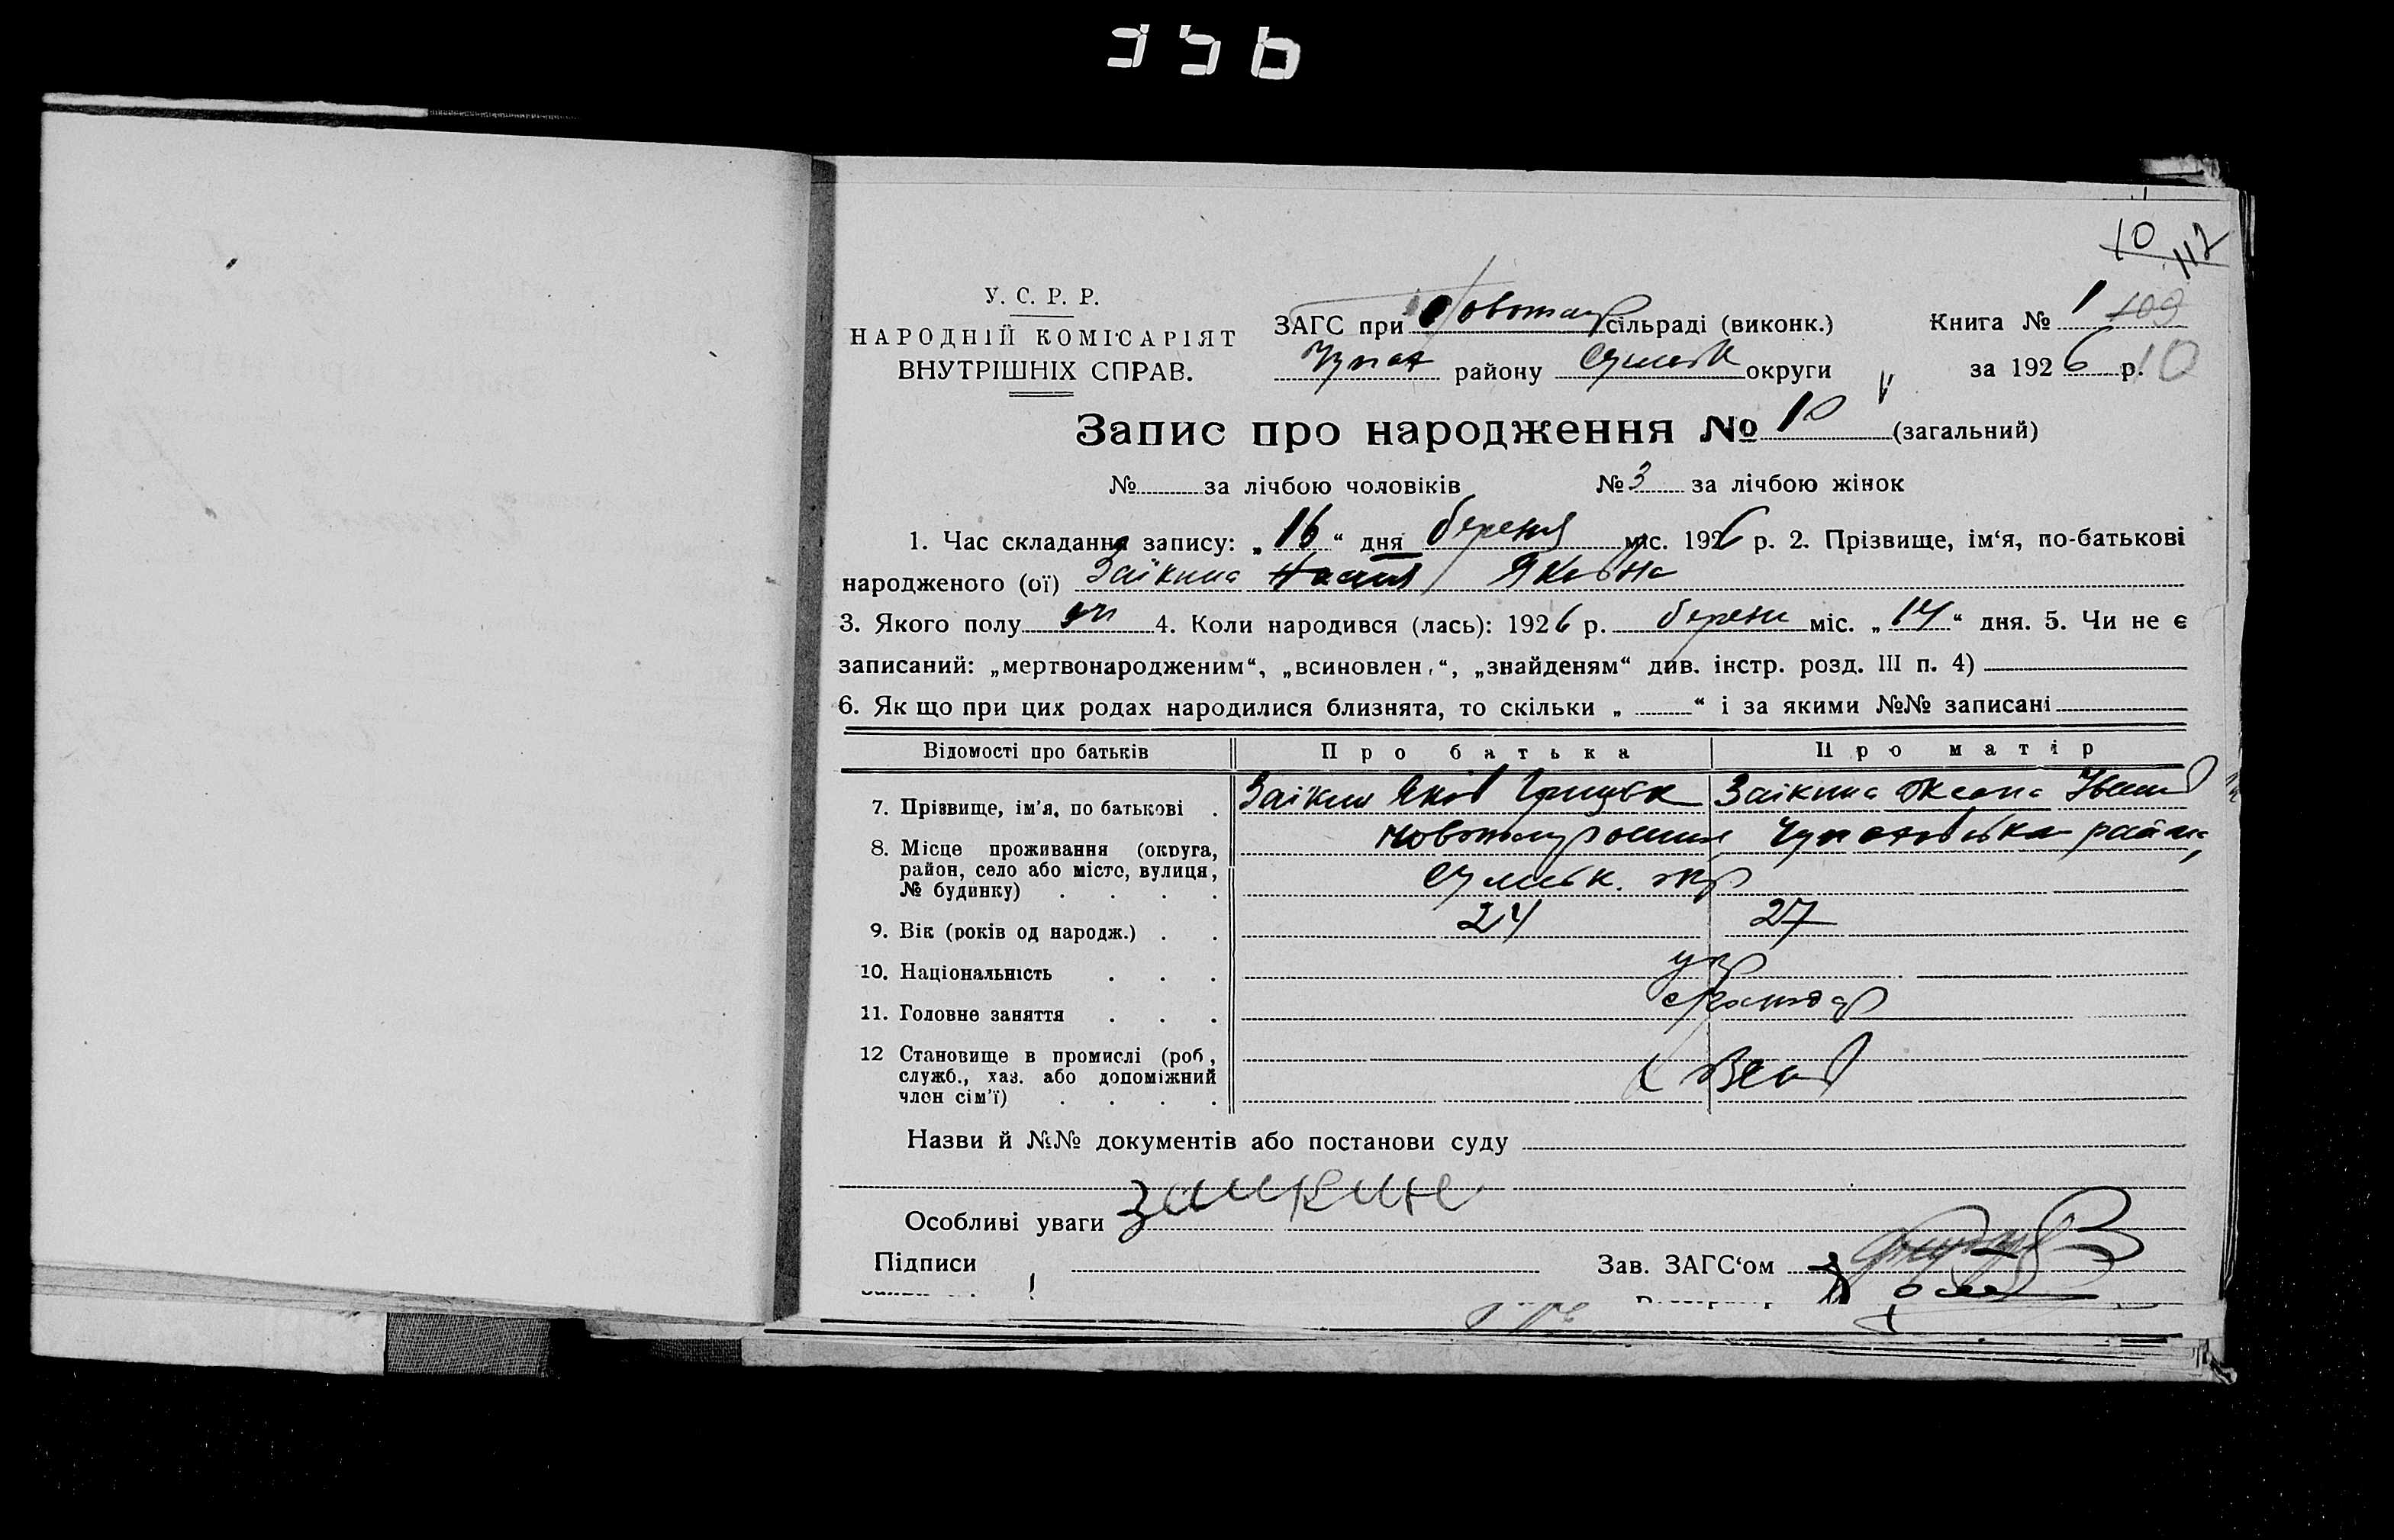 356
10
112
У. С. Р. Р.
НАРОДНІЙ КОМІСАРІЯТ
ВНУТРІШНІХ СПРАВ.
ЗАГС при сільраді (виконк.)
району Сумськ округи
Книга № 1 109
за 1926 р. 10
Запис про народження № 10 (загальний)
№ за лічбою чоловіків № 3 за лічбою жінок
1. Час складання запису: „ 16 “ дня березня міс. 1926 р. 2. Прізвище, ім‘я, по-батькові
народженого (ої) Заїкина Яковна
3. Якого полу 4. Коли народився (лась): 1926 р. березн міс. „ 14 “ дня. 5. Чи не є
записаний: „мертвонародженим“, „всиновлен.“, „знайденям“ див. інстр. розд. III п. 4)
6. Як що при цих родах народилися близнята, то скільки „ “ і за якими №№ записані
Відомості про батьків Про батька Про матір
7. Прізвище, ім’я, по батькові . Заїкин Яків Грицьк Заїкина Оксана Іван
8. Місце проживання (округа,
район, село або місто, вулиця,
№ будинку) . . . . Сумськ. окр
9. Вік (років од народж.) . . 24 27
10. Національність . . . укр
11. Головне заняття . . .
12 Становище в промислі (роб,
служб., хаз. або допоміжний
член сім’ї) . . . .
Назви й №№ документів або постанови суду
Особливі уваги
Підписи Зав. ЗАГС‘ом